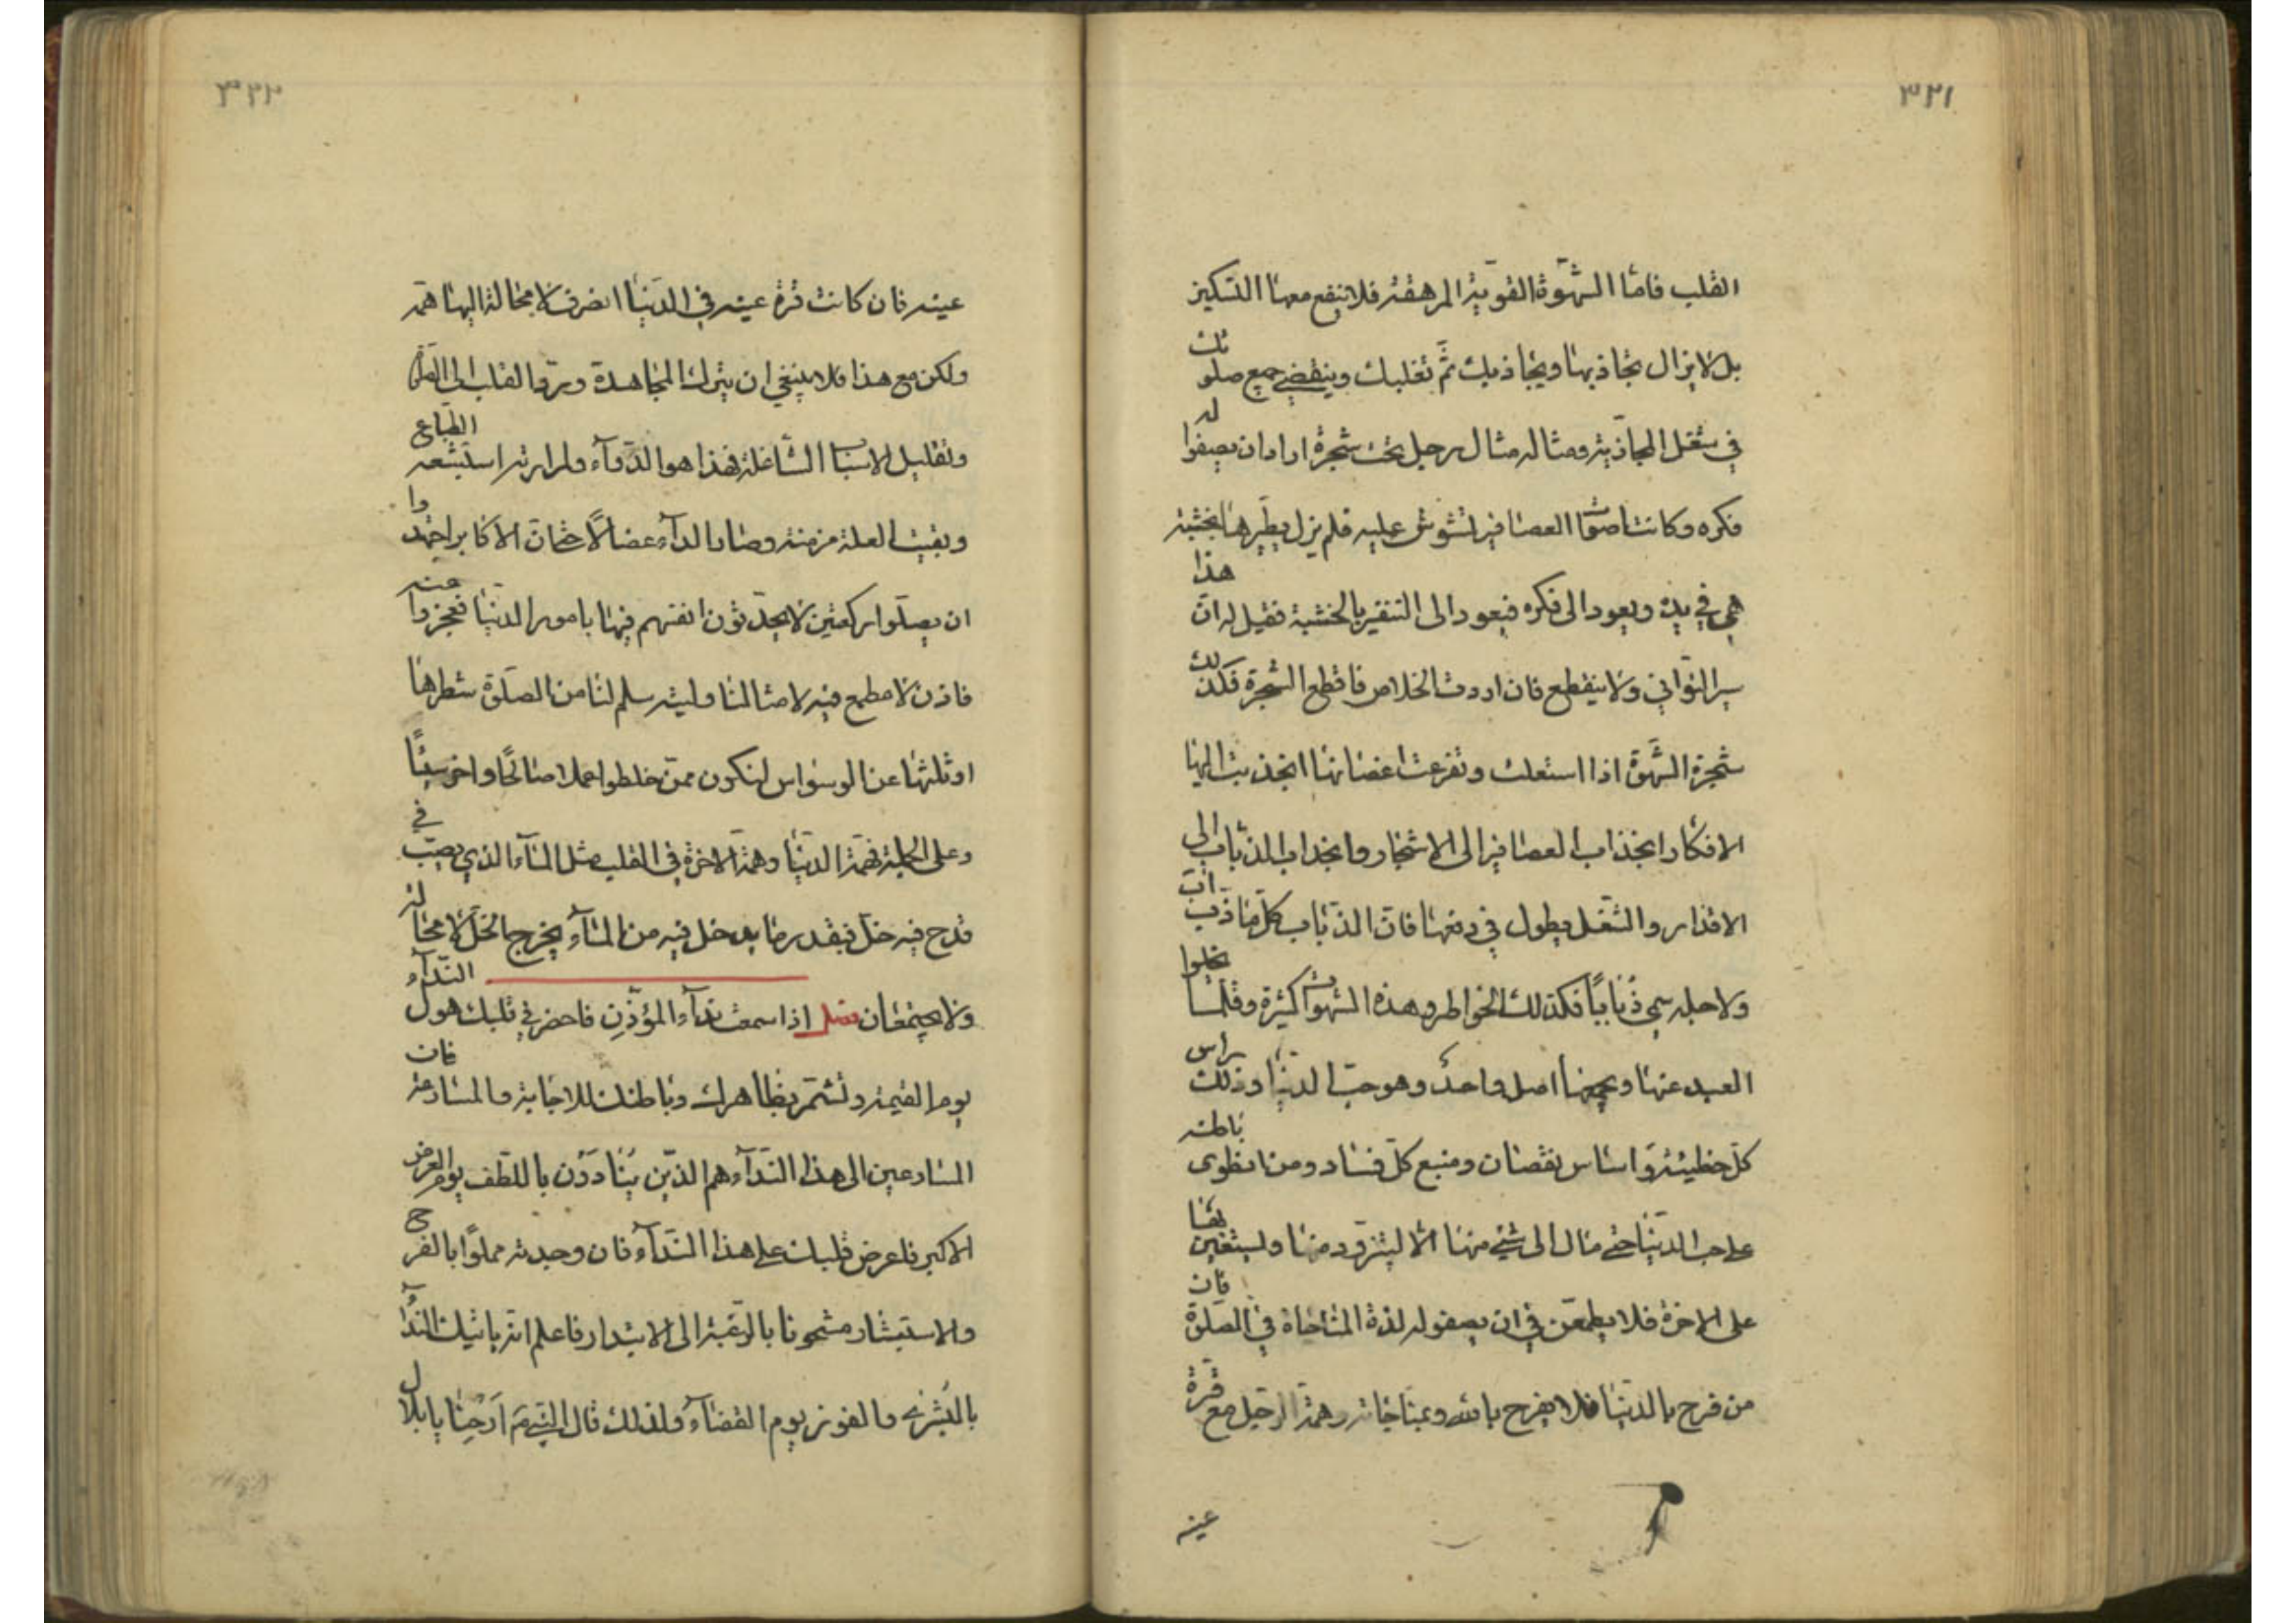 ٣٢١
القلب فامّا الشّهوة القويّة المرهقة فلا ينفع معها التسكين
بل لا يزال تجاذبها ويجاذبك ثمّ تغلبك وينقضي جميع صلوتك
في شغل المجاذبة ومثاله مثال رجل تحت شجرة اراد ان يصفوا له
فكره وكانت اصوات العصافير تشوش عليه فلم يزل يطيّرها بخشبة
هي في يده ويعود الى فكره فيعود الى التنفير بالخشبة فقيل له انّ هذا
سير التواني ولا ينقطع فان اردت الخلاص فاقطع الشجرة فكذلك
شجرة الشّهوة اذا استعلت وتفرعت اغصانها انجذبت اليها
الافكار انجذاب العصافير الى الاشجار وانجذاب الذباب الى
الاقذار والشّغل يطول في دفعها فانّ الذّباب كلّما ذبّ اب
ولاجله سمي ذُباباً فكذلك الخواطر وهذه الشهوات كثيرة وقلّما يخلوا
العبد عنها ويجمعها اصل واحدٌ وهو حبّ الدنيا وذلك راس
كلّ خطيئة واساس نقصان ومنبع كلّ فساد ومن انطوى باطنه
على حب الدّنيا حتى مال الى شيء منها الا ليتزوّد منها وليستعين بها
على الاخرة فلا يطمعنّ في ان يصفو له لذة المناجاة في الصّلوة فان
من فرح بالدّنيا فلا يفرح بالله وبمناجاته وهمّة الرّجل مع قرّة
عينه
٣٢٢
عينه فان كانت قرة عينه في الدّنيا انصرف لا محالة اليها همّه
ولكن مع هذا فلا ينبغي ان يترك المجاهدة وردّ القلب الى الصّلوة
وتقليل الاسباب الشّاغلة فهذا هو الدّواء ولمرارته استبشعه الطّباع
وبقيت العلة مزمنة وصار الداء عضالًا حتّى انّ الاكابر اجتهدوا
ان يصلّوا ركعتين لا يحدّثون انفسهم فيها بامور الدنيا فعجزوا عنه
فاذن لا مطمع فيه لامثالنا وليته سلم لنا من الصلوة شطرها
او ثلثها عن الوسواس لنكون ممّن خلطوا عملا صالحًا واخر سيئًا
وعلى الجملة فهمّة الدنيا وهمّة الاخرة في القلب مثل الماء الذي يصبّ في
قدح فيه خلّ فبقدر ما يدخل فيه من الماء يخرج من الخلّ لا محالة
ولا يجتمعان فصل اذا سمعت نداء المؤذّن فاحضر في قلبك هول النّداء
يوم القيمة وتشمّر بظاهرك وباطنك للاجابة والمسارعة فان
المسارعين الى هذا النّداء هم الّذين يُنادَون باللّطف يوم العرض
الاكبر فاعرض قلبك على هذا النّداء فان وجدته مملوًّا بالفرح
والاستبشار مشحونا بالرّغبة الى الابتدار فاعلم انه ياتيك النّداء
بالبُشرى والفوز يوم القضاء ولذلك قال النبي ص اَرحنا يا بلال